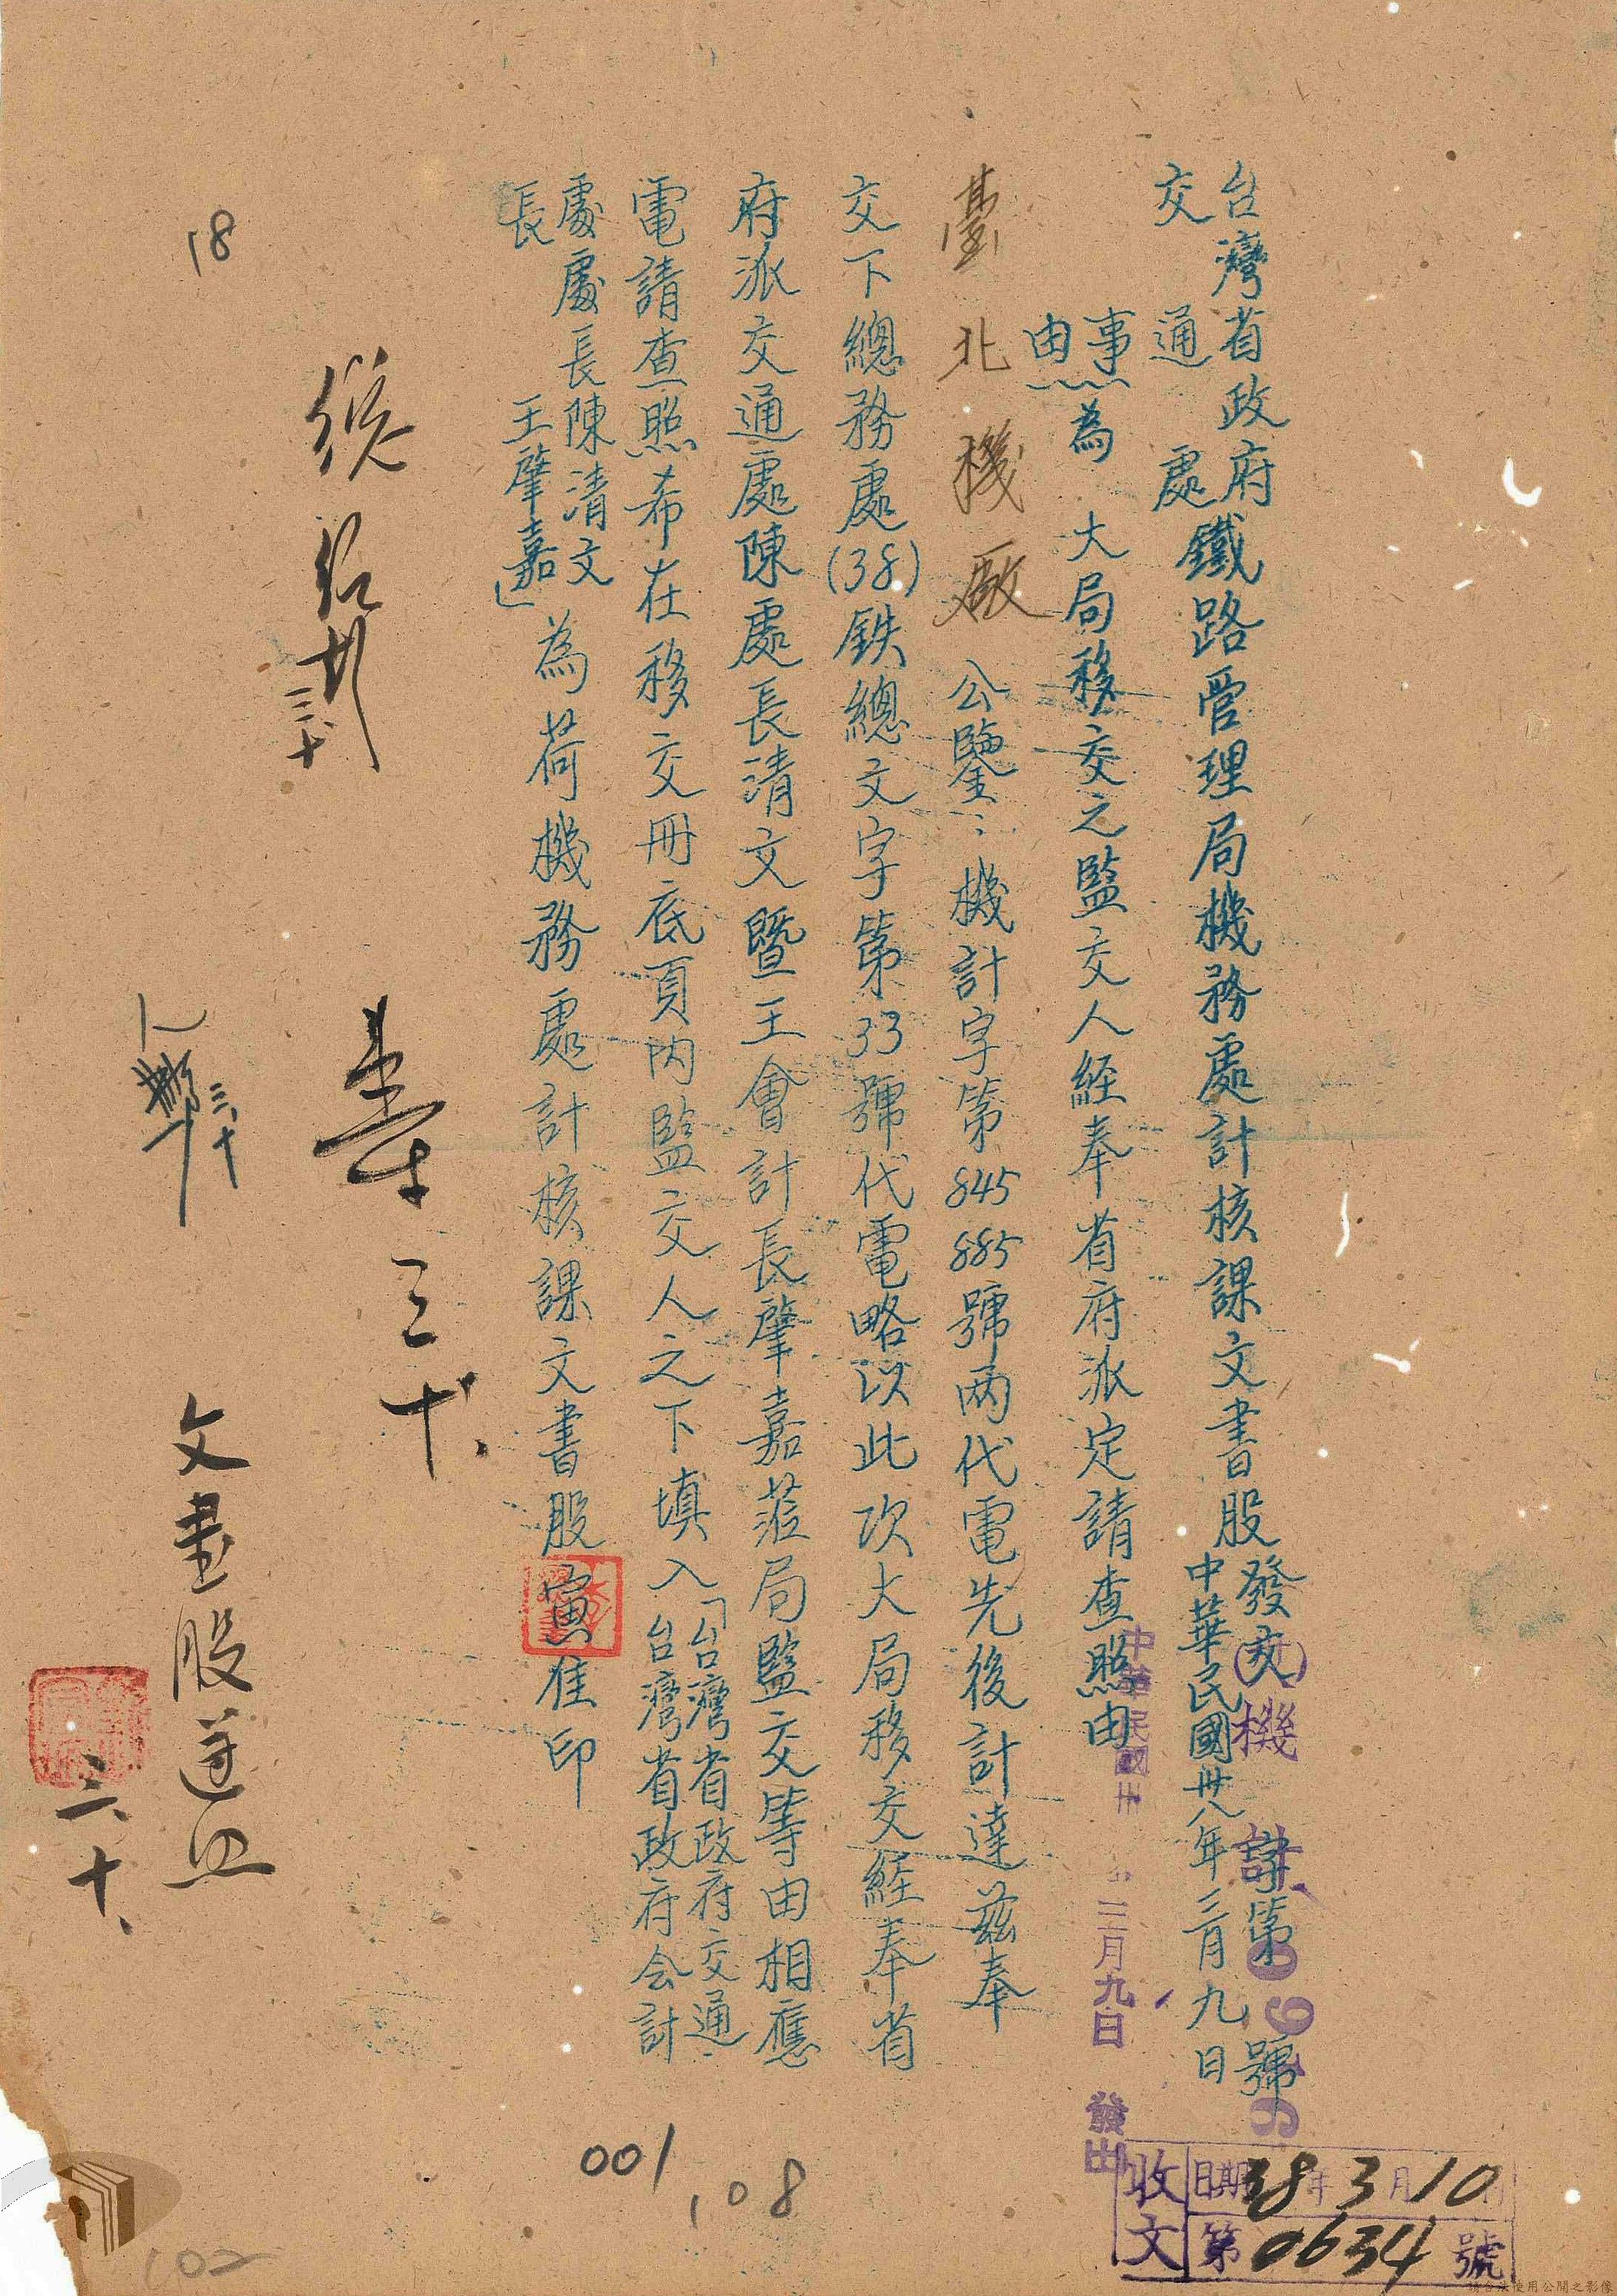 台灣省政府
交通處
鐵路管理局機務處計核課文書股
發文(卅)機計第號
中華民國卅八年三月九日
事由：為 大局移交之監交人経奉 省府派定請查照由
中華民國 三月九日 發出
臺北機廠 公鑒：機計字第845 885號兩代電先後計達茲奉
交下總務處(38)鉄總文字第33號代電略以此次大局移交経奉省
府派交通處陳處長清文暨王會計長肇嘉蒞局監交等由相應
電請查照希在移交冊底頁內監交人之下填入「台灣省政府交通
台灣省政府会計
處處長陳清文
長 王肇嘉」
為荷機務處計核課文書股寅佳印
18
三.十
壽 三十.
三.十
文書股
三.十.
收文
日期38年3月10日
第0634號
001
108
102